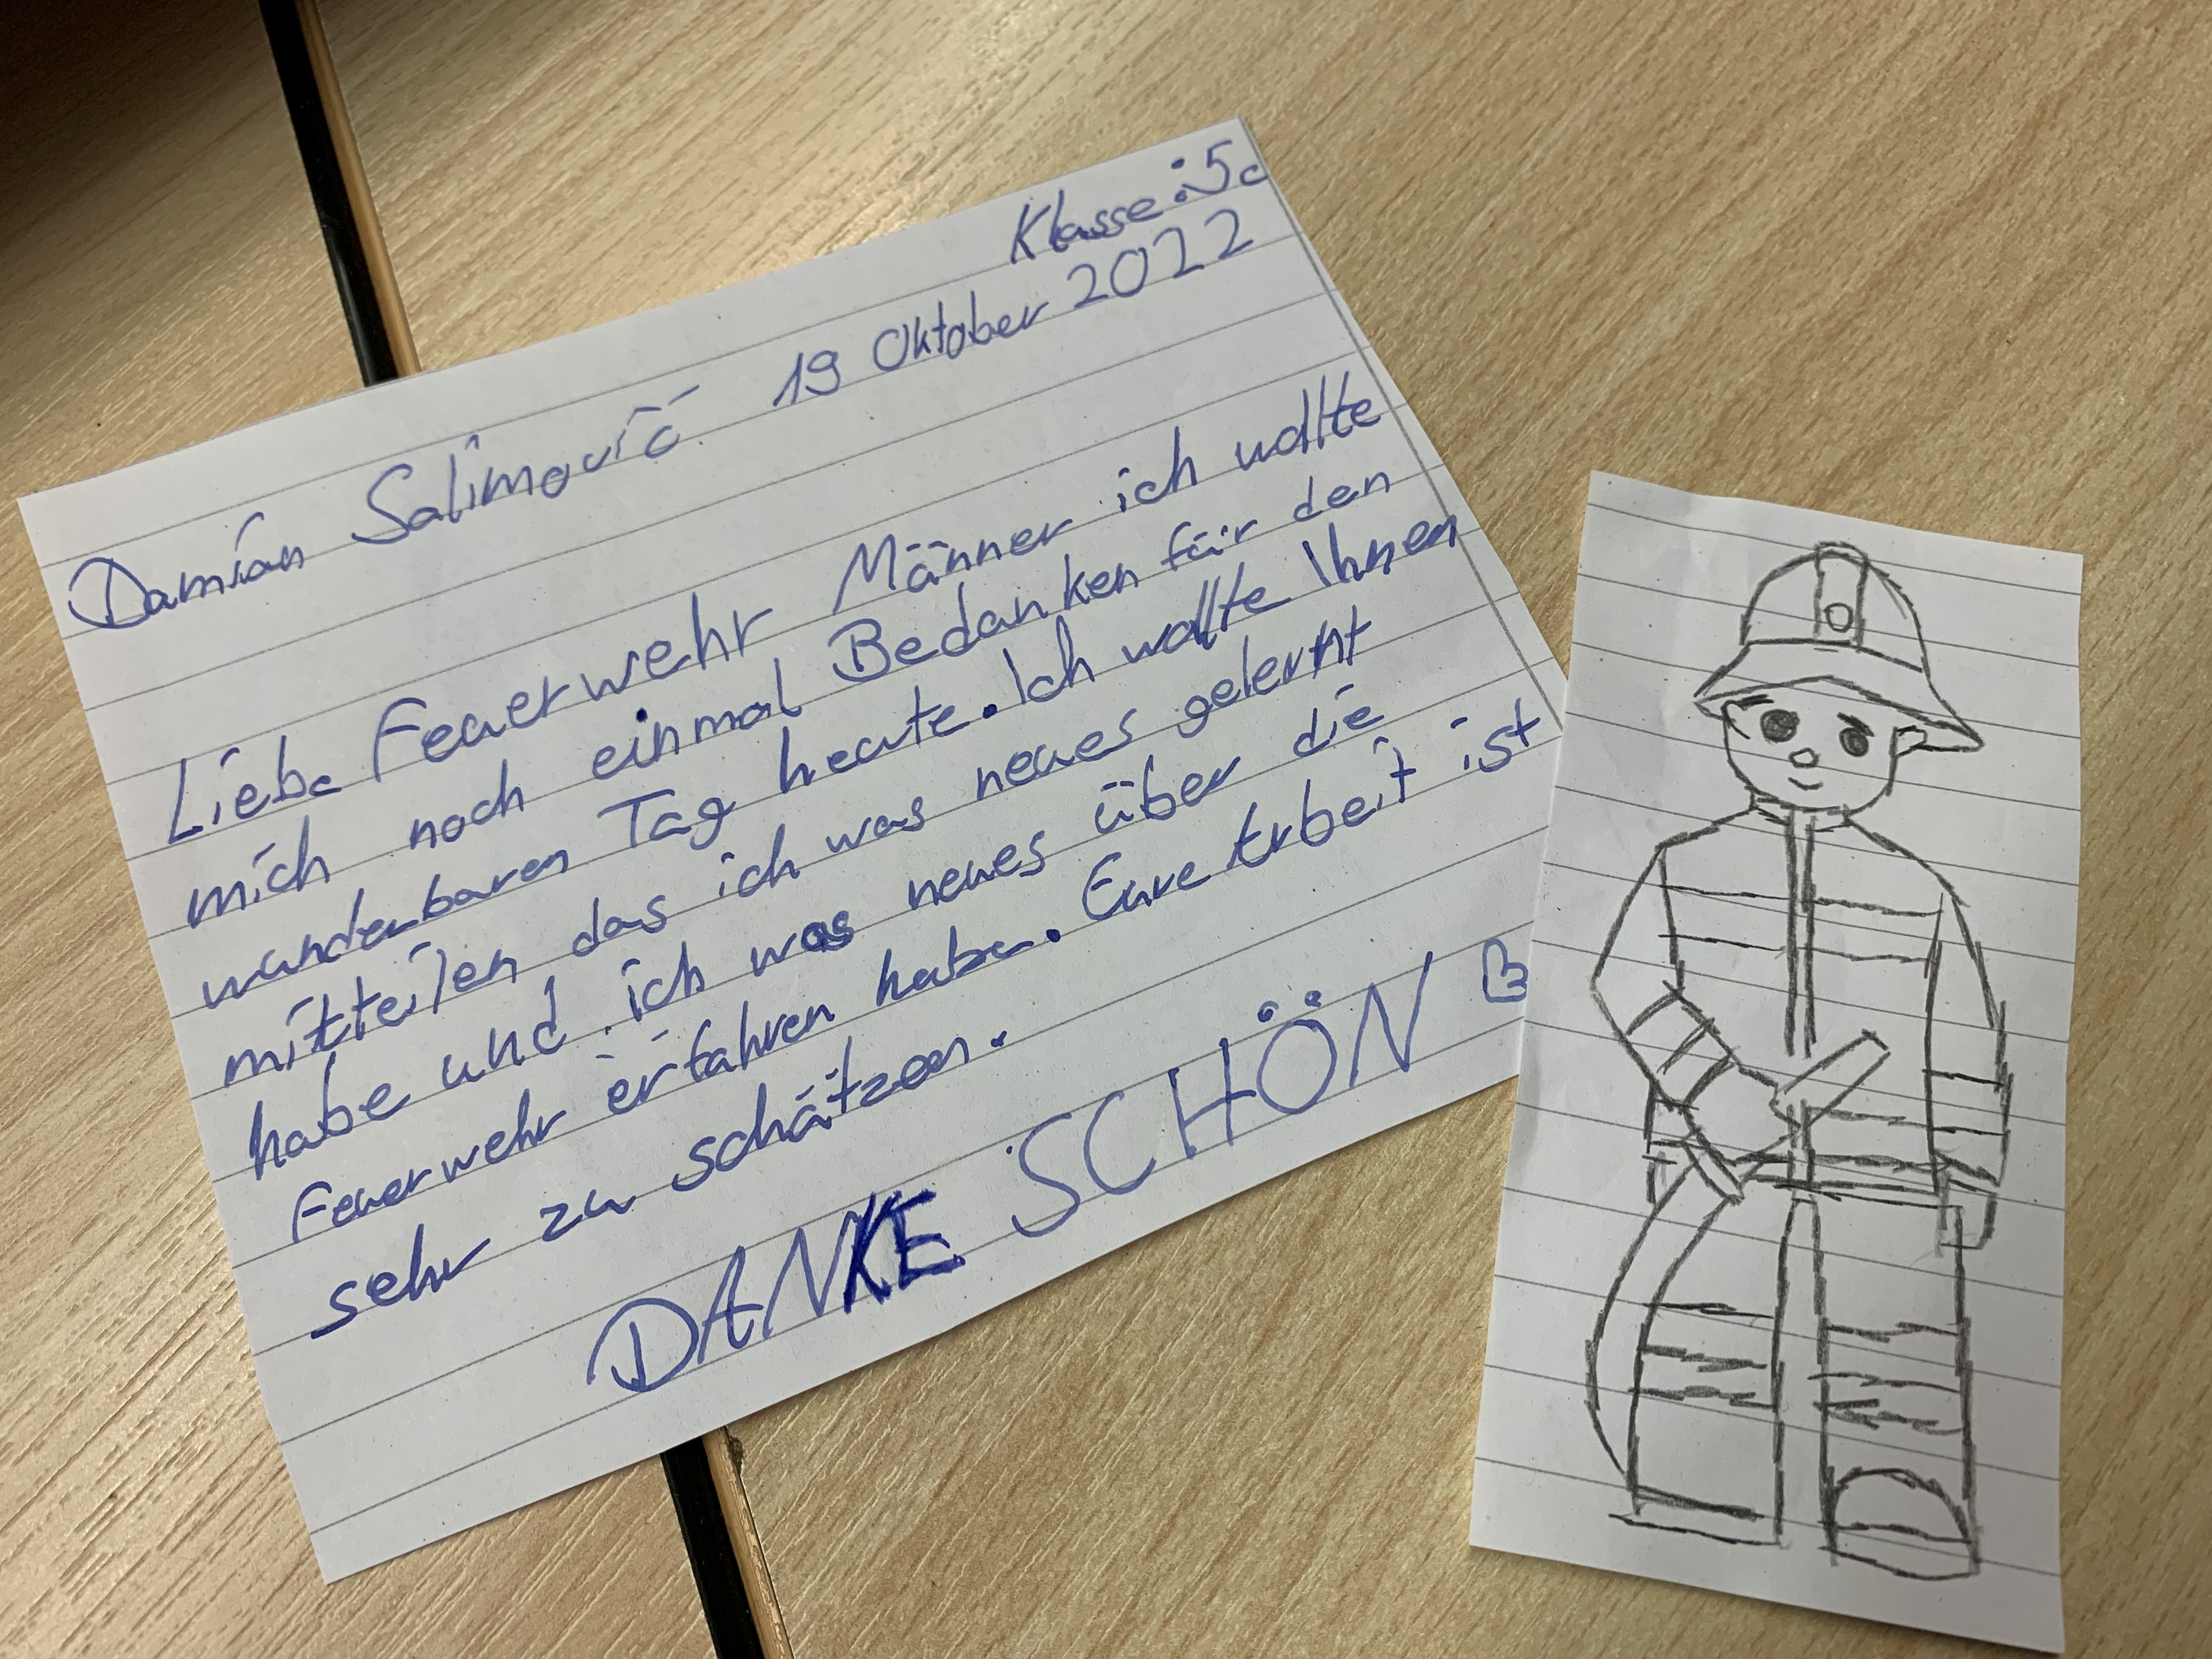 Klasse: 5c
Damian Salimović 19 Oktober 2022
Liebe Feuerwehr Männer ich wollte
mich noch einmal Bedanken für den
wunderbaren Tag heute. Ich wollte Ihnen
mitteilen das ich was neues gelernt
habe und ich was neues über die
Feuerwehr erfahren habe. Eure Arbeit ist
sehr zu schätzen.
DANKE SCHÖN